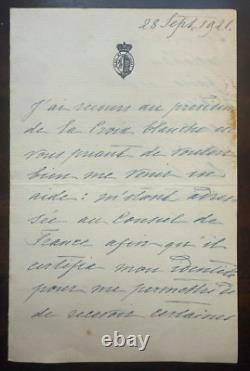 28 Sept. 1921.
J'ai recours au
de la Croix blanche
vous priant de vouloir
bien me venir en
aide : m'étant adres-
sée au Consul de
France afin qu'il
certifie mon identité
pour me permettre
de recevoir certaines
© hakenwith.com